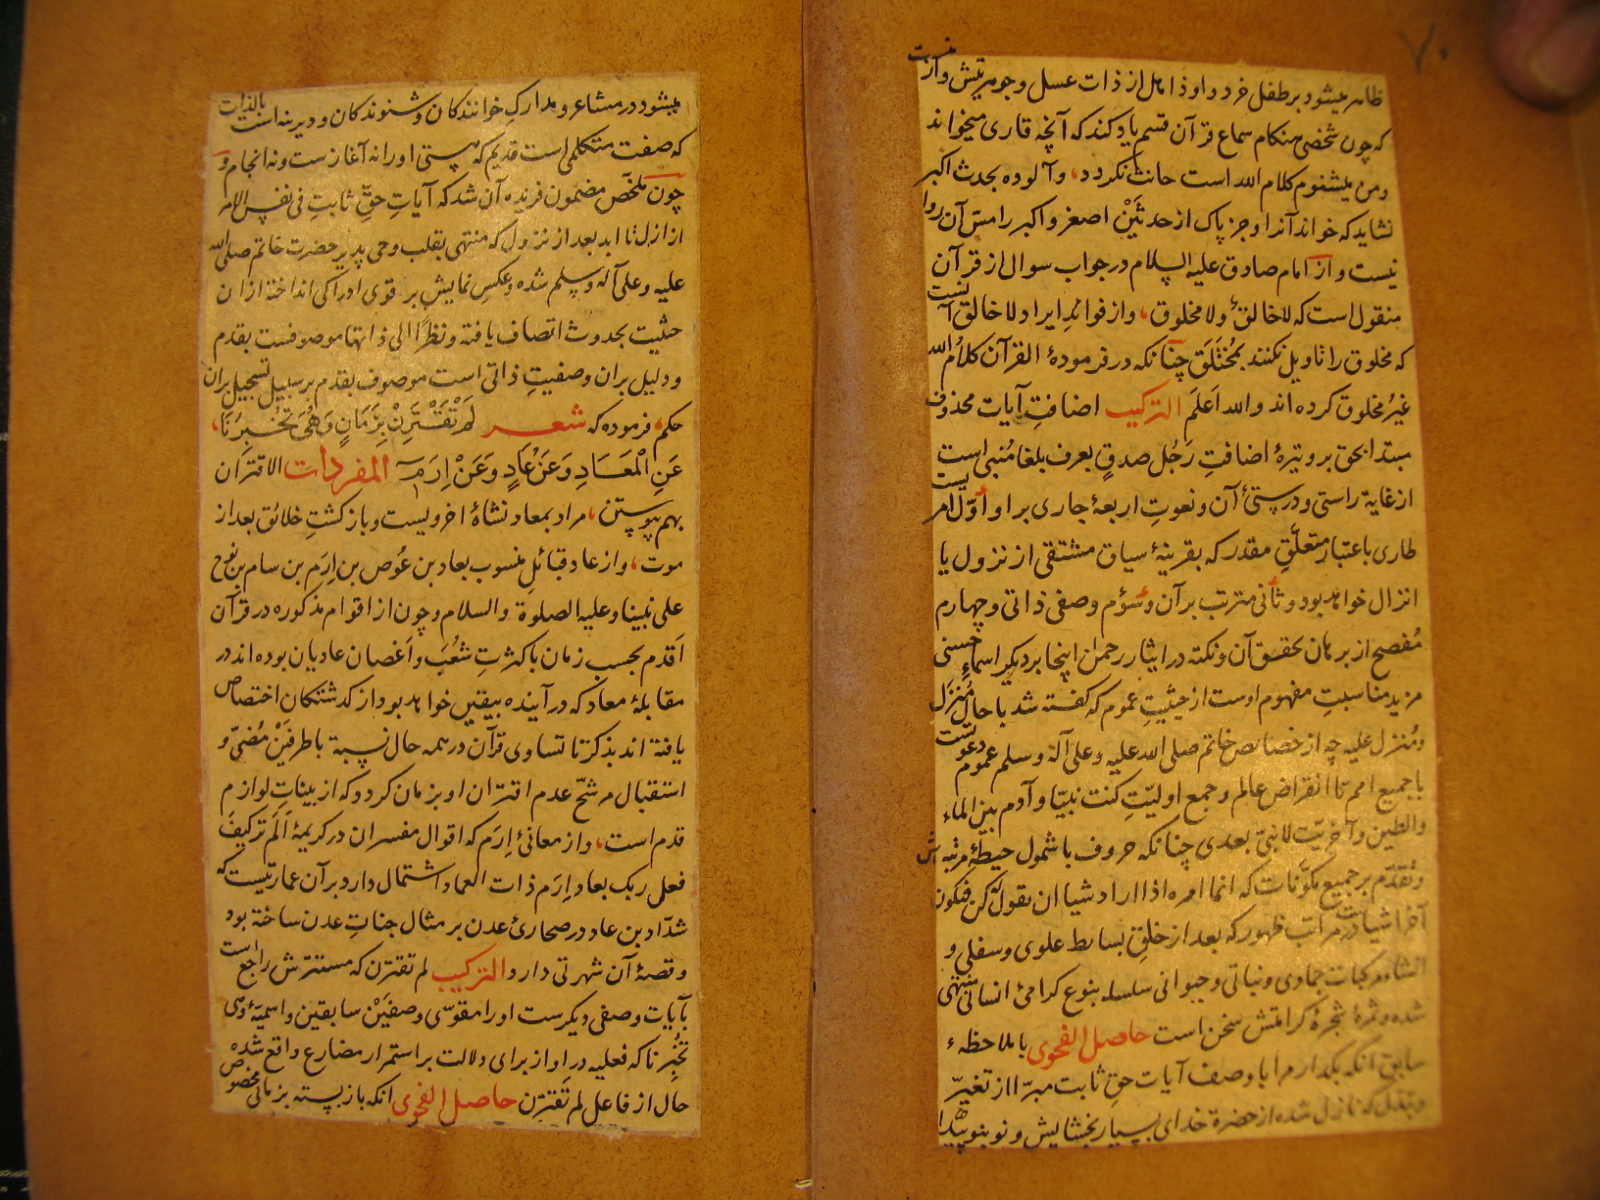 ۷۰
ظاهر میشود بر طفل خرد و او ذاهل از ذات عسل و جوهریتش و از منیست
که چون شخصی هنکام سماع قرآن قسم یاد کند که آنچه قاری میخواند
ومن میشنوم کلام الله است حانث نکردد، و آلوده بحدث اکبر
نشاید که خواند آنرا و جز پاک از حدثَیْن اصغر و اکبر را مس آن روا
نیست و از امام صادق علیه السلام در جواب سوال از قرآن
منقول است که لا خالقٌ ولا مخلوق، و از فوائدِ ایراد لا خالق آنست
که مخلوق را تاویل نکنند بمُختَلَق چنانکه در فرمودهٔ القرآن کلامُ الله
غیرُ مخلوق کرده اند والله اَعلَم الترکیب اضافتِ آیات محذوف
مبتدا بحق بر وتیرهٔ اضافتِ رَجُل صدقٍ بعرف بلغا مُنبی است
از غایهٔ راستی و درستیٔ آن و نعوتِ اربعهٔ جاری بر او اوّل امریست
طاری باعتبارِ متعلَّقِ مقدر که بقرینهٔ سیاق مشتقی از نزول یا
انزال خواهد بود و ثانی مترتب بر آن و سؤم وصفی ذاتی و چهارم
مُفصح از برهان تحقق آن و نکته در ایثار رحمن اینجا بر دیکر اسماءِ حسنی
مزید مناسبتِ مفهوم اوست از حیثیتِ عموم که کفته شد با حال مُنزَل
ومُنزل علیه چه از خصائص خاتم صلی الله علیه وعلی آله وسلم عموم دعوتست
با جمیع امم تا انقراض عالم و جمع اولیّتِ کنت نبیّا و آدم بین الماء
والطین و آخریّت لا نبیّ بعدی چنانکه حروف با شمول حیطهٔ مرتبه اش
وتقدّم بر جمیع مکوَّنات که انما امره اذا اراد شیا ان یقول له کن فیکون
آخر اشیاست در مراتب ظهور که بعد از خلقِ بسایط علوی و سفلی و
انشاء مرکبات جمادی و نباتی و حیوانی سلسله بنوع کرامیٔ انسانی منتهی
شده و ثمرهٔ شجرهٔ کرامتش سخن است حاصل الفحوی با ملاحظهء
سابق انکه بکذار مرا با وصف آیات حقِ ثابت مبرّا از تغیّر
و تبدل که نازل شده از حضرة خدای بسیار بخشایش و نو بنو پیدا
میشود در مشاعر و مدارکِ خوانندکان و شنوندکان و دیرینه است بالذات
که صفت متکلمی است قدیم که هستی او را نه آغازست و نه انجام و
چون ملخّص مضمون فریده آن شد که آیاتِ حقِّ ثابتِ فی نفس الامر
از ازل تا ابد بعد از نزول که منتهی بقلب وحی پذیر حضرت خاتم صلی الله
علیه وعلی آله وسلم شده و عکسِ نمایش بر قوی ادراکی انداخته از ان
حیثیت بحدوث اتصاف یافته و نظرًا الی ذاتها موصوفست بقدم
و دلیل بران وصفیتِ ذاتی است موصوف بقدم بر سبیل تسجیل بران
حکم، فرموده که شعر لَمْ تَقْتَرِنْ بِزَمَانٍ وَهْیَ تُخْبِرُنَا،
عَنِ الْمَعَادِ وَعَنْ عَادٍ وَعَنْ اِرَمٍ المفردات الاقتران
بهم پیوستن، مراد بمعاد نشاهٔ اخرویست و بازکشتِ خلائق بعد از
موت، و از عاد قبائلِ منسوب بعاد بن عُوص بن اِرَم بن سام بن نوح
علی نبینا وعلیه الصلوة والسلام و چون از اقوام مذکوره در قرآن
اَقدم بحسب زمان با کثرتِ شُعَب و اَغصان عادیان بوده اند در
مقابلهٔ معاد که در آینده بیقین خواهد بود از کذشتکان اختصاص
یافته اند بذکر تا تساوی قرآن در همه حال نسبة با طرفَیْن مُضیّ و
استقبال مرشّح عدم اقتران او بزمان کردد که از بیناتِ لوازم
قدم است، و از معانیٔ اِرَم که اقوال مفسران در کریمهٔ اَلَم تر کیفَ
فعل ربک بعاد اِرَم ذات العماد اشتمال دارد بر آن عمارتیست که
شدّاد بن عاد در صحاریٔ عدن بر مثال جناتِ عدن ساخته بود
و قصهٔ آن شهرتی دارد الترکیب لم تقترن که مستترش راجع است
بآیات وصفی دیکرست او را مقوّیِ وصفَیْن سابقین و اسمیّهٔ وهی
تُخْبِرنا که فعلیه در او از برای دلالت بر استمرار مضارع واقع شده
حال از فاعل لم تَقترِن حاصل الفحوی انکه باز بسته بزمانی مخصوص